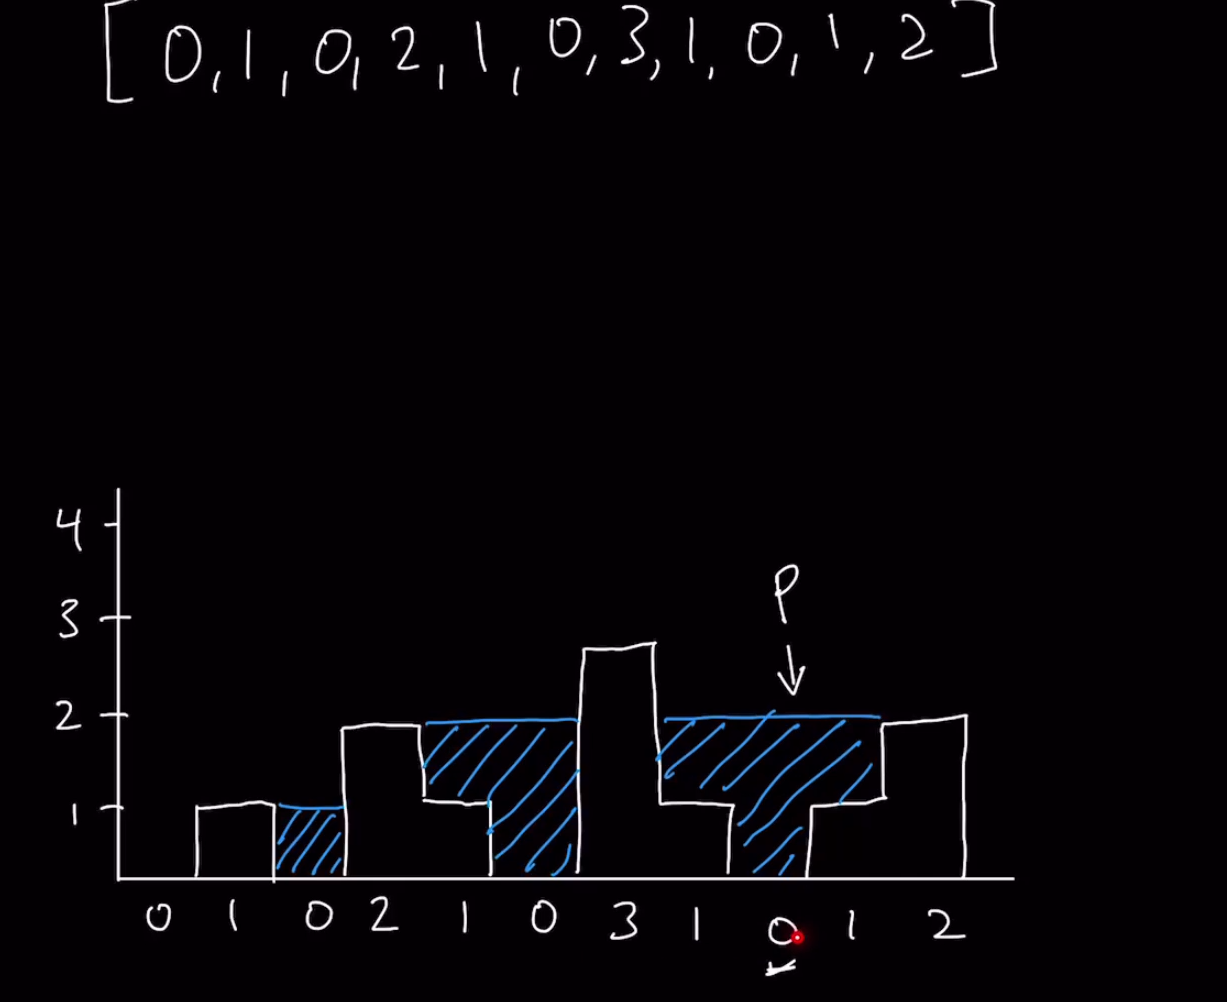 [0,1,0,2,1,0,3,1,0,1,2]
4
P
3
2
1
0 1 0 2 1 0 3 1 0 1 2